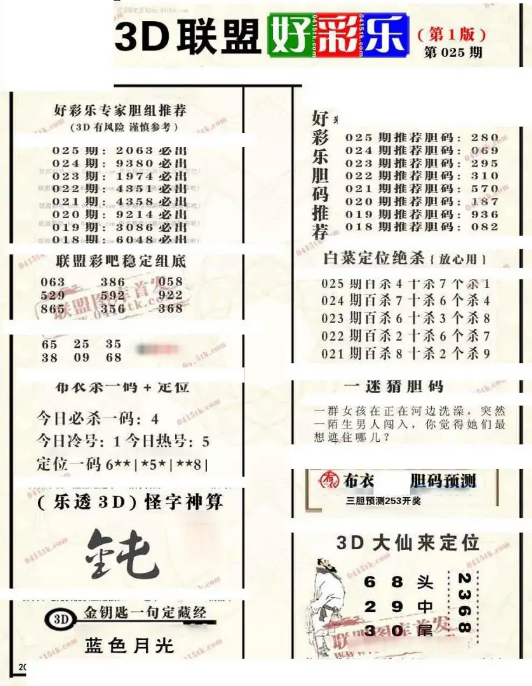 3D联盟好彩乐
(第1版)
第025期
好彩乐专家胆组推荐
(3D有风险 谨慎参考)
025期: 2063必出
024期: 9380必出
023期: 1974必出
022期: 4351必出
021期: 4358必出
020期: 9214必出
019期: 3086必出
018期: 6048必出
联盟彩吧稳定组底
063 386 058
529 592 922
865 356 368
65 25 35
38 09 68
布衣杀一码+定位
今日必杀一码: 4
今日冷号: 1 今日热号: 5
定位一码 6**|*5*|**8|
(乐透3D)怪字神算
3D
金钥匙一句定藏经
蓝色月光
好彩乐胆码推荐
025期推荐胆码: 280
024期推荐胆码: 069
023期推荐胆码: 295
022期推荐胆码: 310
021期推荐胆码: 570
020期推荐胆码: 187
019期推荐胆码: 936
018期推荐胆码: 082
白菜定位绝杀{放心用}
025期百杀4十杀7个杀1
024期百杀7十杀6个杀4
023期百杀6十杀3个杀8
022期百杀2十杀6个杀7
021期百杀8十杀2个杀9
一迷猜胆码
一群女孩在正在河边洗澡, 突然
一陌生男人闯入, 你觉得她们最
想遮住哪儿?
布衣 胆码预测
三胆预测253开奖
3D大仙来定位
6 8 头
2 9 中
3 0 尾
2368
联盟图库首发
0415tk.com